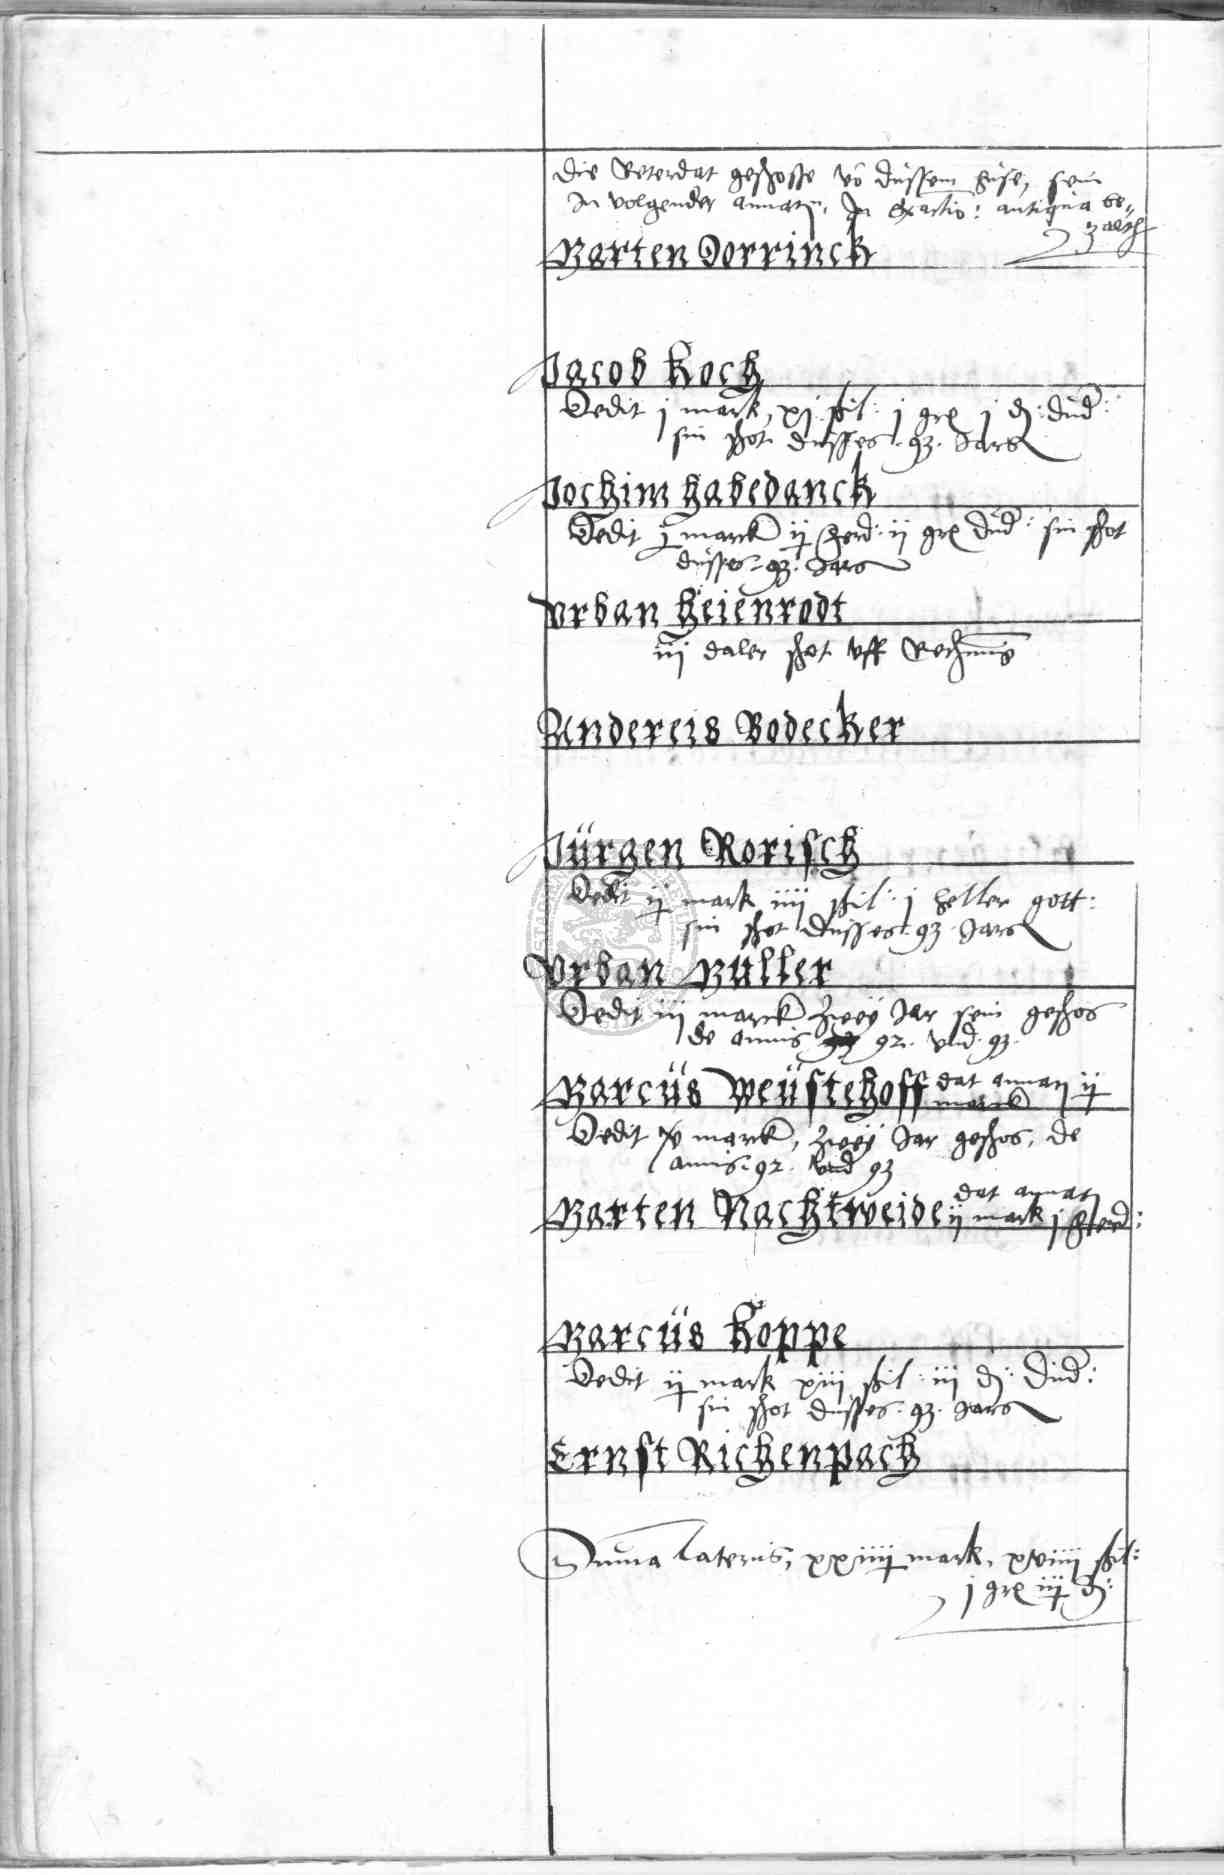 Die Reterdat geschosse vō dussem huse, sein
In volgender annaty. In exactio: antiqua be-
zalth
Marten Dorrinck
Jacob Koch
Dedit j mark, xj schil: j gre j d: dnd:
sin schot dusses .93. Jars
Jochim Habedanck
Dedit j marck ij ferd: ij gre dnd: sin schot
dusses .93. Jars
Vrban Heienrodt
iij daler schot vff Rechnung
Andereis Bodecker
Jürgen Rorisch
Dedit ij mark iiij schil: j heller gott:
sin schot dusses .93. Jars
Vrban Müller
Dedit iij marck zwey Jar sein geschos
de annis 92. vnd .93.
Marcüs Weüstehoff dat annaty ij
marck
Dedit marck, zweÿ Jar geschos, de
annis .92. vnd 93
Marten Nachtweide dat annaty
ij mark j ferd:
Marcüs Koppe
Dedit ij mark xiij schil: iij d: dnd:
sin schot dusses .93. Jars
Ernst Richenpach
Suma lateris, xxiiij mark, xviiij schil:
j gre iij d: